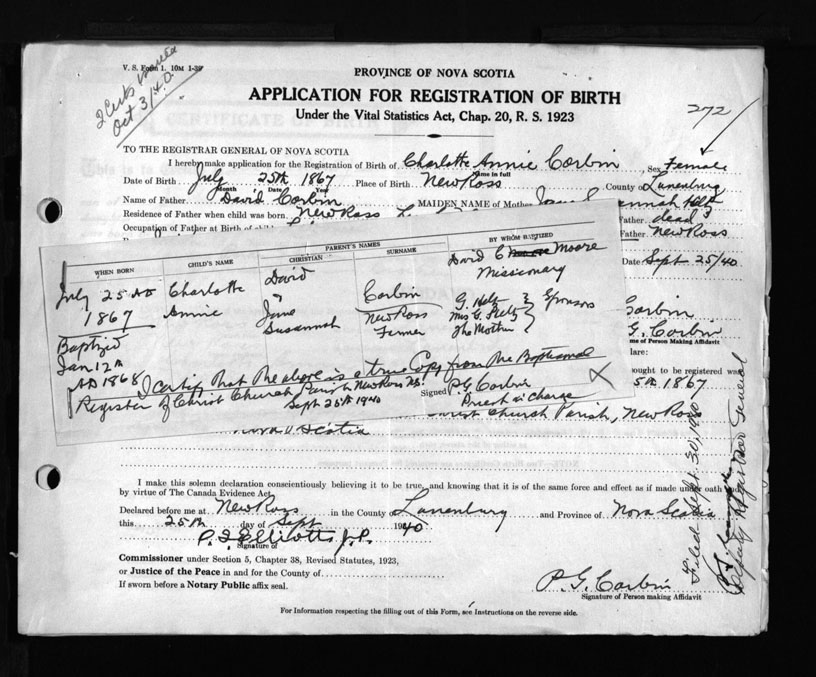 V. S. Form 1. 10M 1-39
2 Certs
Oct 3/40.
PROVINCE OF NOVA SCOTIA
APPLICATION FOR REGISTRATION OF BIRTH
Under the Vital Statistics Act, Chap. 20, R. S. 1923
272
TO THE REGISTRAR GENERAL OF NOVA SCOTIA
I hereby make application for the Registration of Birth of Charlotte Annie Corbin, Sex Female
Name in full
Date of Birth July 25th 1867 Place of Birth New Ross County of Lunenburg
Month Date Year
Name of Father David Corbin MAIDEN NAME of Mother
Residence of Father when child was born New Ross
Father dead
Occupation of Father at Birth of
Father New Ross
Date Sept 25/40
WHEN BORN CHILD'S NAME PARENT'S NAMES CHRISTIAN SURNAME BY WHOM BAPTIZED
July 25 AD 1867
Baptized
Jan 12th
AD 1868
Charlotte
Annie
David
&
Jane
Susannah
Corbin
New Ross
Farmer
David C Moore
Missionary
G. Helt
Mrs G.
The Mother
Sponsors
I certify that the above is a true Copy from the Baptismal
Register of Christ Church Parish New Ross N.S.
Sept 25th 1940
Signed P.G. Corbin
Priest in Charge
Corbin
G. Corbin
me of Person Making Affidavit
lare:
ought to be registered was
5th 1867
Church Parish, New Ross
Nova Scotia
I make this solemn declaration conscientiously believing it to be true, and knowing that it is of the same force and effect as if made under oath
by virtue of The Canada Evidence Act.
Declared before me at New Ross in the County of Lunenburg and Province of Nova Scotia
this 25th day of Sept 1940
J.P.
Signature of
Commissioner under Section 5, Chapter 38, Revised Statutes, 1923,
or Justice of the Peace in and for the County of
If sworn before a Notary Public affix seal.
P.G. Corbin
Signature of Person making Affidavit
For Information respecting the filling out of this Form, see Instructions on the reverse side.
Filed Sept. 30, 1940
Deputy Registrar General